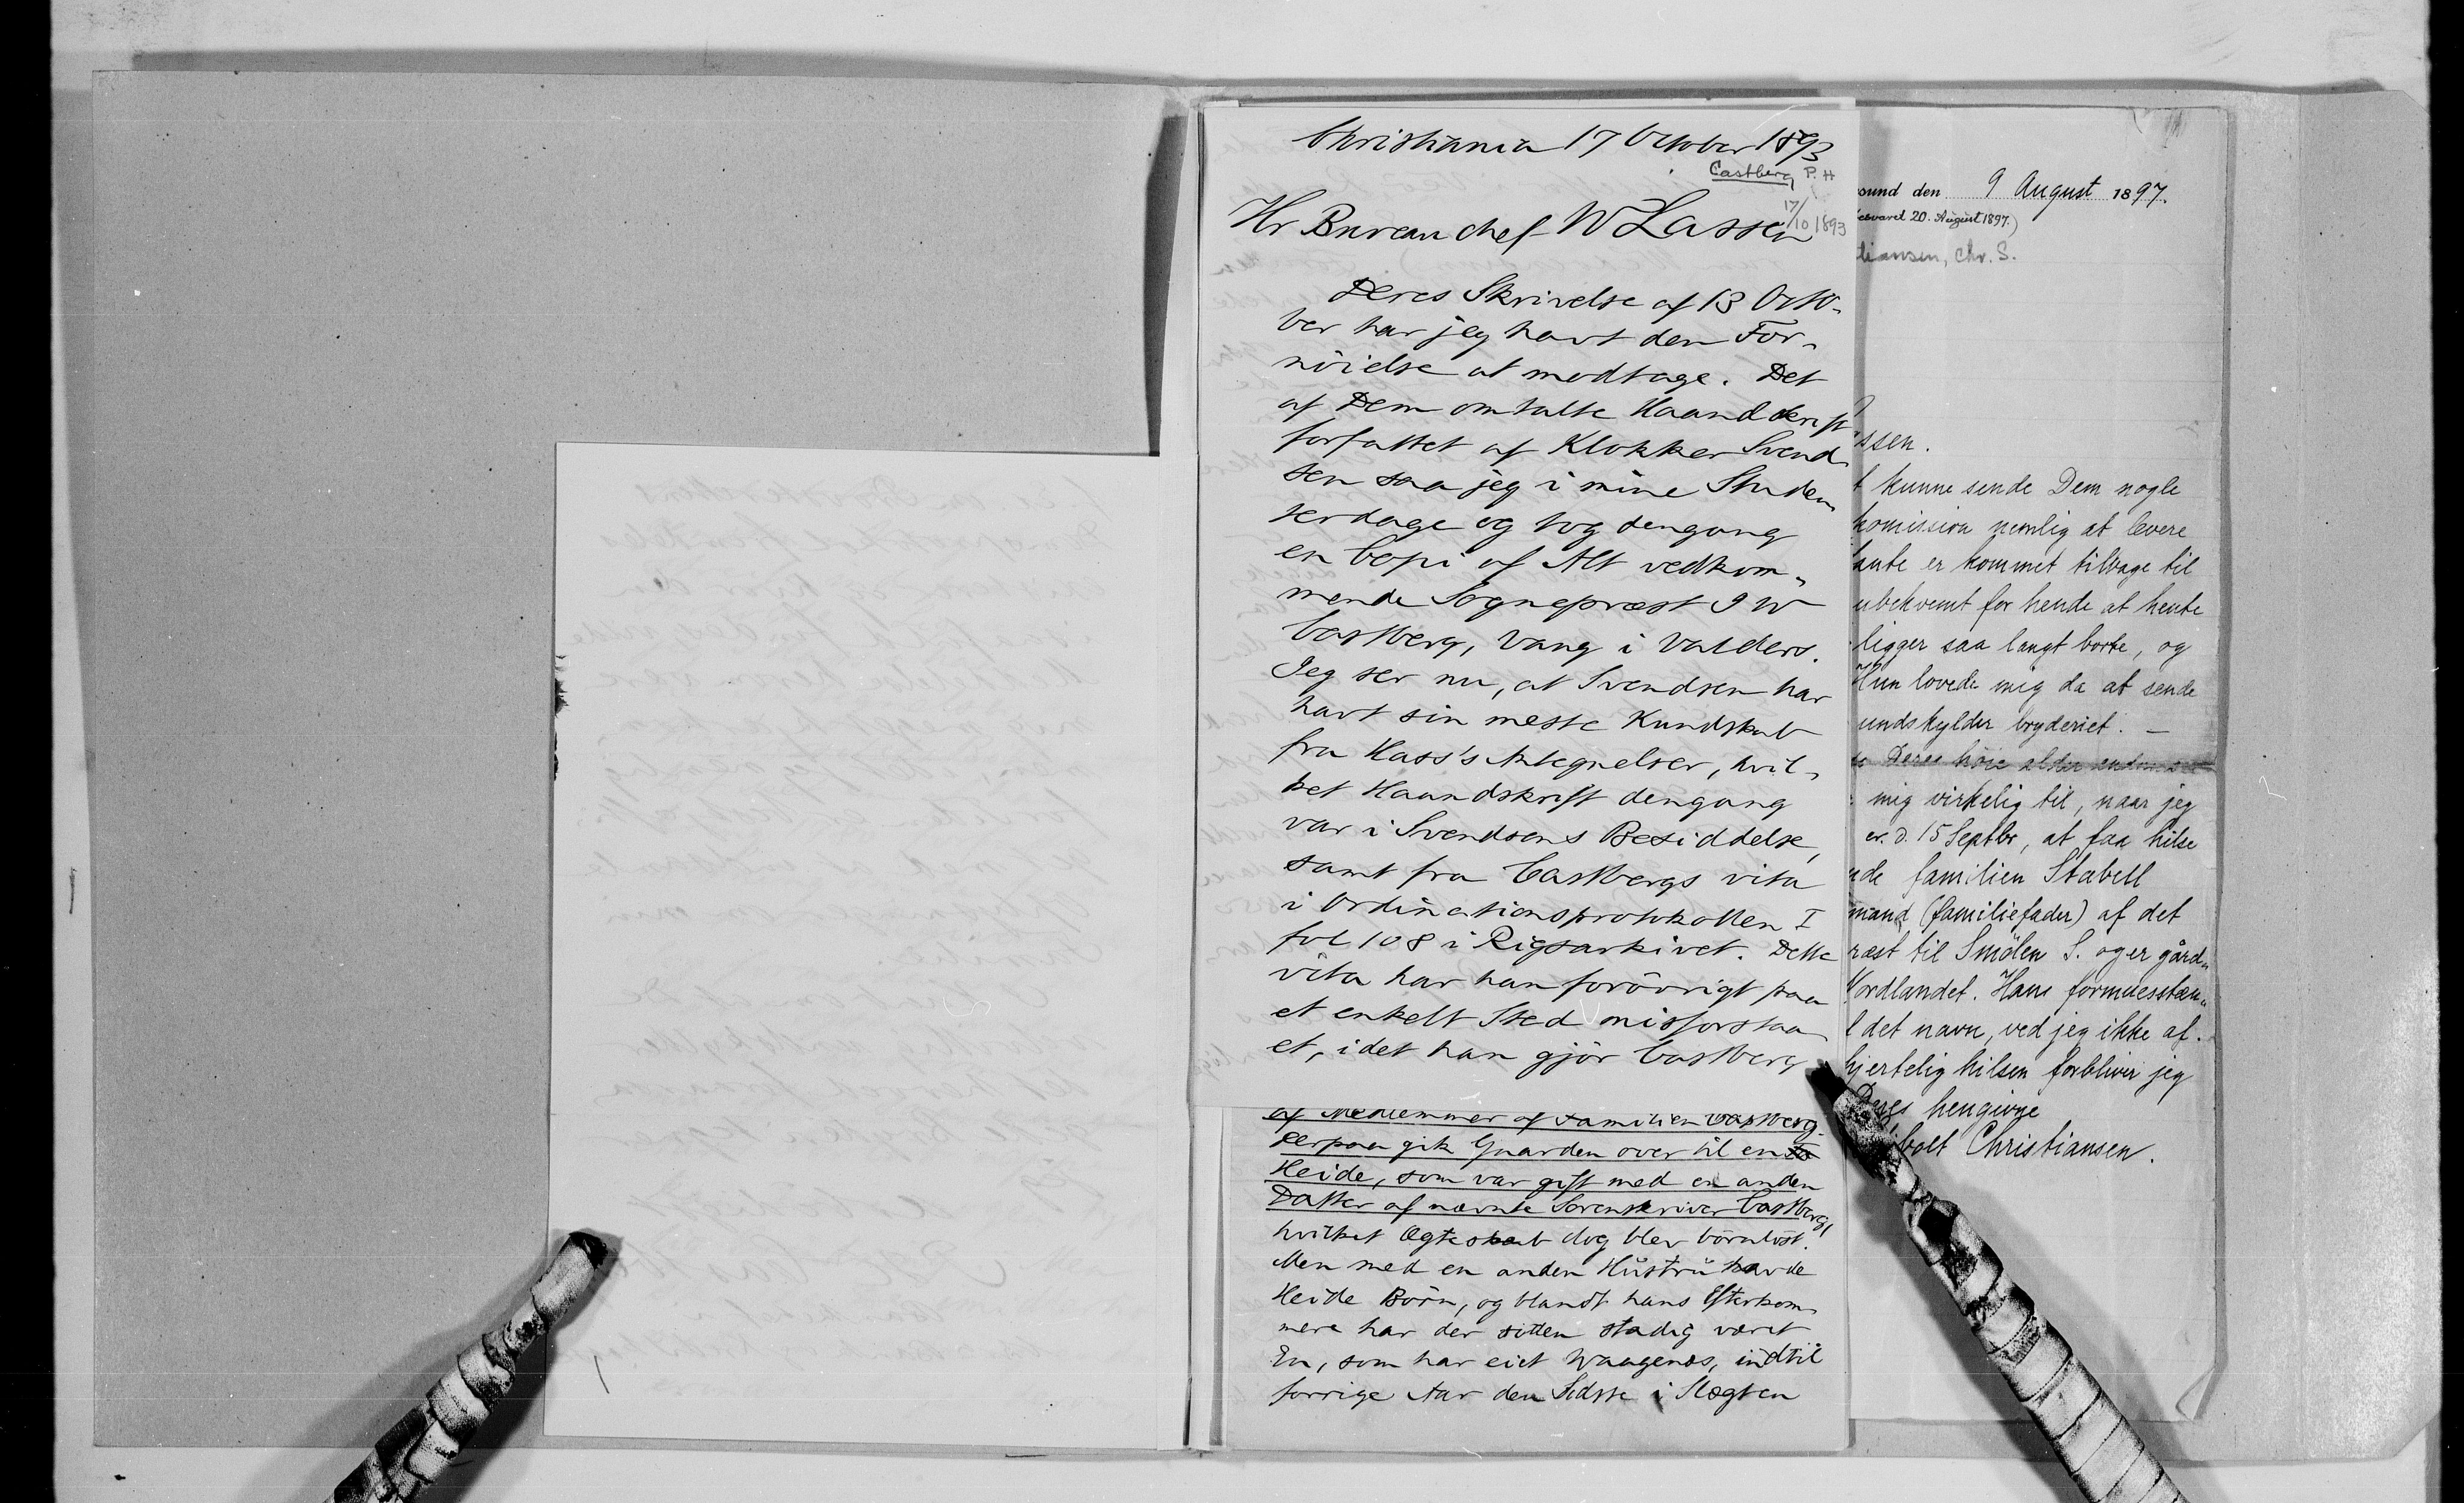 Christiania 17 October 1893
Castberg P. H
17/10 1893
Hr Bureauchef W Lassen
Deres Skrivelse af 13 Octo-
ber har jeg havt den For-
nöielse at modtage. Det
af Dem omtalte Haandskrift
forfattet af Klokker Svend-
sen saa jeg i mine Studen-
terdage og tog dengang
en Copi af Alt vedkom-
mende Sognepræst J W
Castberg, Vang i Valders.
Jeg ser nu, at Svendsen har
havt sin meste Kundskab
fra Hass's Antegnelser, hvil-
ket Haandskrift dengang
var i Svendsens Besiddelse,
samt fra Castbergs vita
i Ordinationsprotokollen I
fol 108 i Rigsarkivet. Dette
vita har han forövrigt paa
et enkelt Sted misforstaa-
et, idet han gjör Castberg
af Medlemmer af Familien Castberg.
Derpaa gik Gaarden over til en
Heide, som var gift med en anden
Datter af nævnte Sorenskriver Castberg,
hvilket Ægteskab dog blev börnlöst.
Men med en anden Hustru havde
Heide Börn, og blandt hans Efterkom-
mere har der siden stadig været
En, som har eiet Waagenæs, indtil
forrige Aar den Sidste i Slægten
sund den 9 August 1897.
(besvaret 20. August 1897.)
tiansen, Chr. S.
ssen.
t kunne sende Dem nogle
komission nemlig at levere
tante er kommet tilbage til
ubekvemt for hende at hente
ligger saa langt borte, og
Hun lovede mig da at sende
undskylder bryderiet. –
Deres höie alder
mig virkelig til, naar jeg
er. d. 15 Septbr, at faa hilse
de familien Stabell
mand (familiefader) af det
ræst til Smölen S. og er gård-
Nordlandet. Hans formuesstæn-
l det navn, ved jeg ikke af.
hjertelig hilsen forbliver jeg
Deres hengivne
bolt Christiansen.